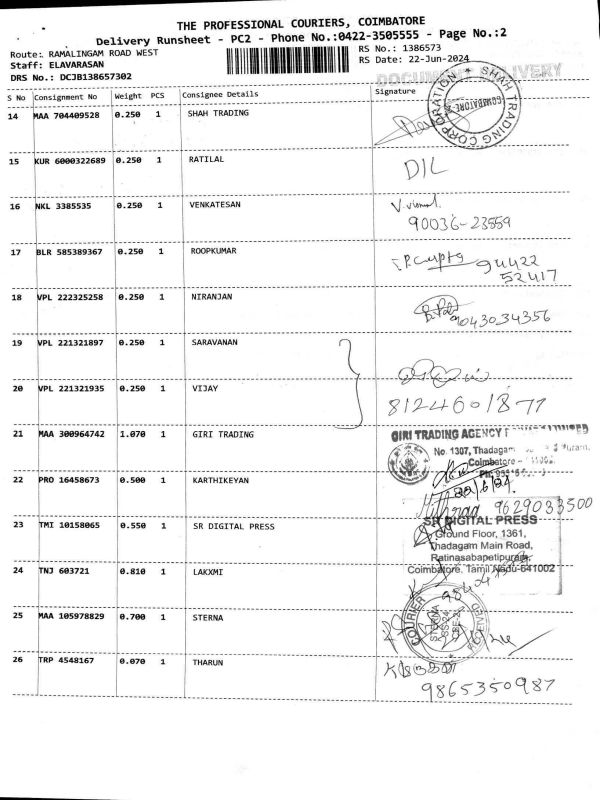 THE PROFESSIONAL COURIERS, COIMBATORE
Delivery Runsheet - PC2 - Phone No.:0422-3505555 - Page No.:2
Route: RAMALINGAM ROAD WEST
RS No.: 1386573
Staff: ELAVARASAN
RS Date: 22-Jun-2024
DRS No.: DCJB138657302
DOCUMENT DELIVERY
S No Consignment No Weight PCS Consignee Details Signature
SHAH TRADING CORPORATION
COIMBATORE
14 MAA 704409528 0.250 1 SHAH TRADING
15 KUR 6000322689 0.250 1 RATILAL DIL
16 NKL 3385535 0.250 1 VENKATESAN
90036-23559
17 BLR 585389367 0.250 1 ROOPKUMAR
94422
52417
18 VPL 222325258 0.250 1 NIRANJAN
9043034356
19 VPL 221321897 0.250 1 SARAVANAN
20 VPL 221321935 0.250 1 VIJAY
8124601877
21 MAA 300964742 1.070 1 GIRI TRADING GIRI TRADING AGENCY LIMITED
No. 1307, Thadagam
Coimbatore -
22/6/24
22 PRO 16458673 0.500 1 KARTHIKEYAN
9629033500
23 TMI 10158065 0.550 1 SR DIGITAL PRESS SR DIGITAL PRESS
Ground Floor, 1361,
Thadagam Main Road,
Ratinasabapetipuram,
Coimbatore. Tamil Nadu-641002
24 TNJ 603721 0.810 1 LAKXMI
25 MAA 105978829 0.700 1 STERNA
COURIER
RECEIVED
26 TRP 4548167 0.070 1 THARUN
9865350987